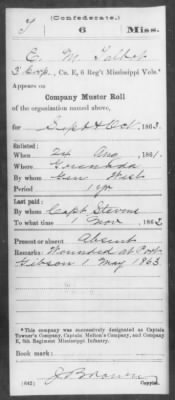 (Confederate.)
J 6 Miss.
C. M. Talbot
3 Corp., Co. E, 6 Reg't Mississippi Vols.*
Appears on
Company Muster Roll
of the organization named above,
for Sept & Oct, 1863.
Enlisted:
When 24 Aug, 1861.
Where Grenada
By whom Gen West
Period 1 yr
Last paid:
By whom Capt Stevens
To what time 1 Nov, 1862
Present or absent Absent
Remarks: Wounded at Port
Gibson 1 May 1863
*This company was successively designated as Captain
Company, Captain Company, and Company
E, 6th Regiment Mississippi Infantry.
Book mark:
(642)
Copyist.